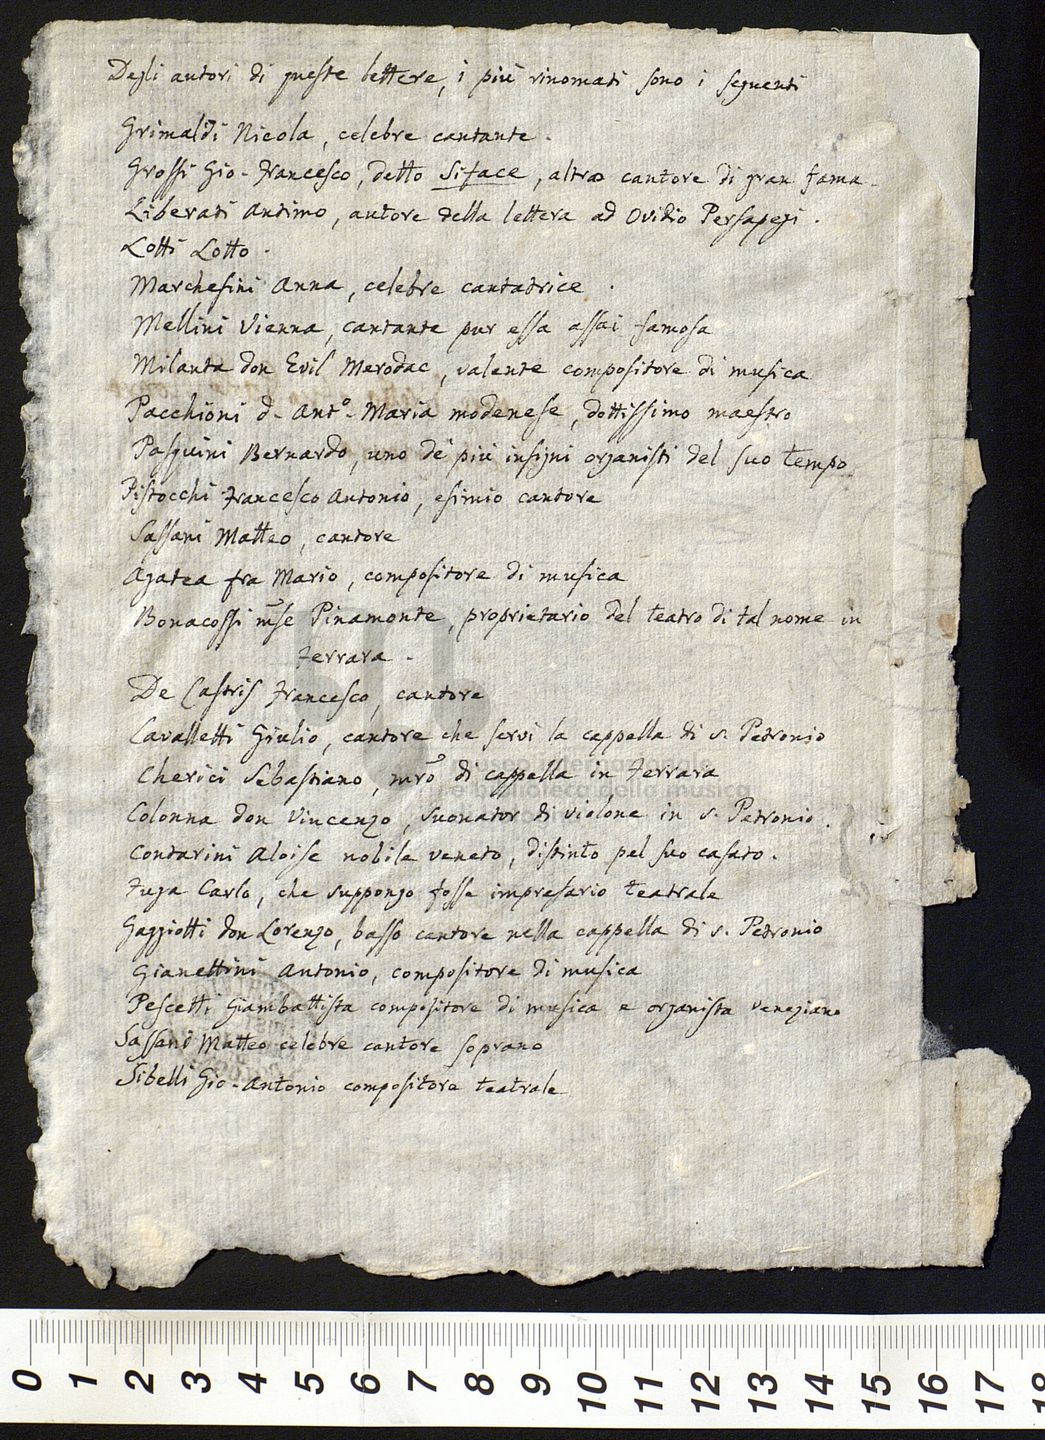 Degli autori di queste lettere, i più rinomati sono i seguenti
Grimaldi Nicola, celebre cantante.
Grossi Gio-Francesco, detto Siface, altro cantore di gran fama.
Liberati Antimo, autore della lettera ad Ovidio Persapegi.
Lotti Lotto.
Marchesini Anna, celebre cantatrice.
Mellini Vienna, cantante pur essa assai famosa
Milanta don Evil Merodac, valente compositore di musica
Pacchioni d. Antº. Maria modenese, dottissimo maestro
Pasquini Bernardo, uno de più insigni organisti del suo tempo
Pistocchi Francesco Antonio, esimio cantore
Sassani Matteo, cantore
Agatea fra Mario, compositore di musica
Bonacossi mse Pinamonte, proprietario del teatro di tal nome in
Ferrara.
De Castris Francesco, cantore
Cavalletti Giulio, cantore che servì la cappella di s. Petronio
Cherici Sebastiano, mro di cappella in Ferrara
Colonna don Vincenzo, suonator di violone in s. Petronio.
Contarini Aloise nobile veneto, distinto pel suo casato.
Fuga Carlo, che suppongo fosse impresario teatrale
Gaggiotti don Lorenzo, basso cantore nella cappella di s. Petronio
Gianettini Antonio, compositore di musica
Pescetti Giambattista compositore di musica e organista veneziano
Sassani Matteo celebre cantore soprano
Sibelli Gio-Antonio compositore teatrale
museo internazionale
e biblioteca della musica
0 1 2 3 4 5 6 7 8 9 10 11 12 13 14 15 16 17 18